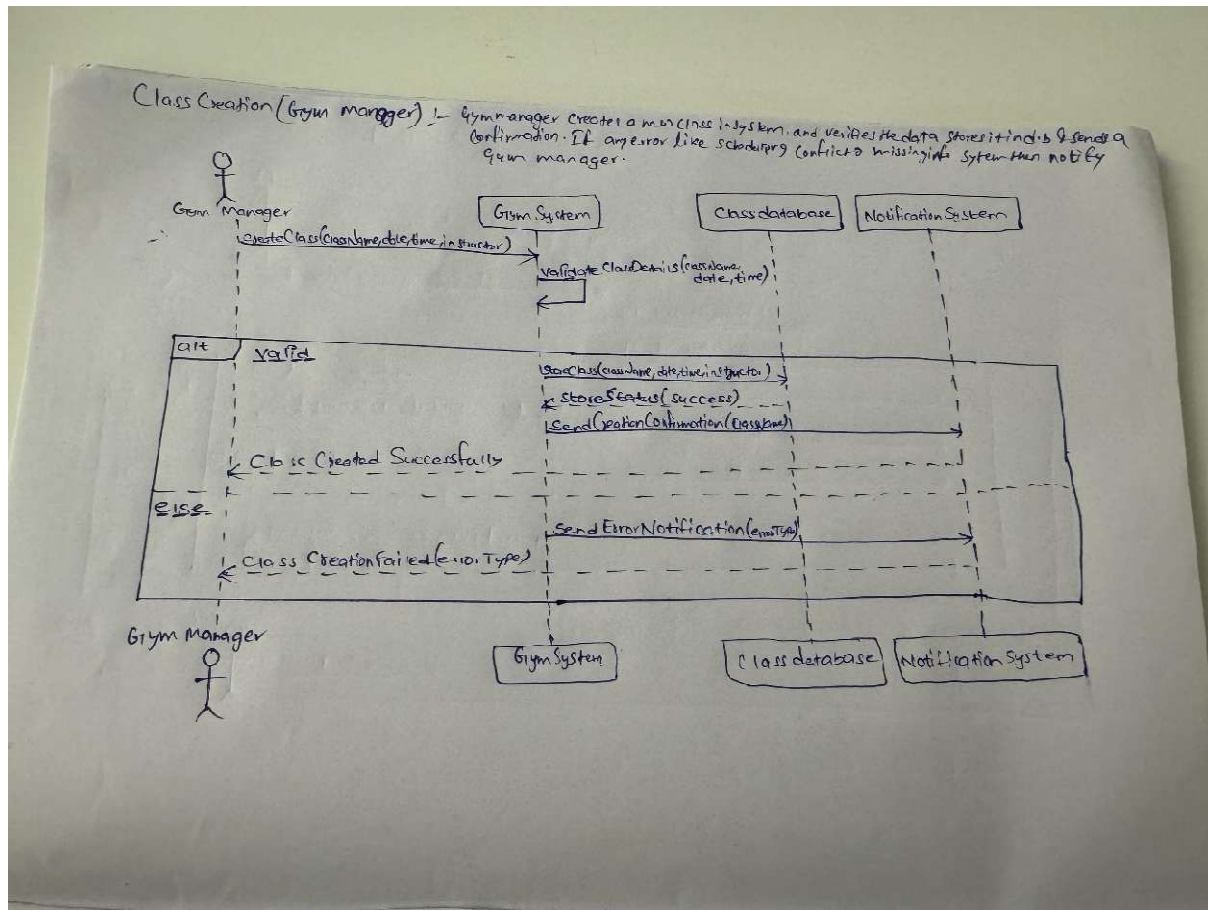 Class Creation (Gym Manager) :- Gym manager creates a new class in system. and verifies the data stores it in d.b & sends a
confirmation. If any error like scheduling conflict missing info sytem then notify
Gym manager.
Gym Manager
Gym System
Class database
Notification System
createClass(className, date, time, instructor)
validateClassDetails(className,
date, time)
alt
valid
storeClass(className, date, time, instructor)
storeStatus(success)
sendCreationConfirmation(className)
Class Created Successfully
else
sendErrorNotification(errorType)
Class Creation failed(errorType)
Gym Manager
Gym System
Class database
Notification System